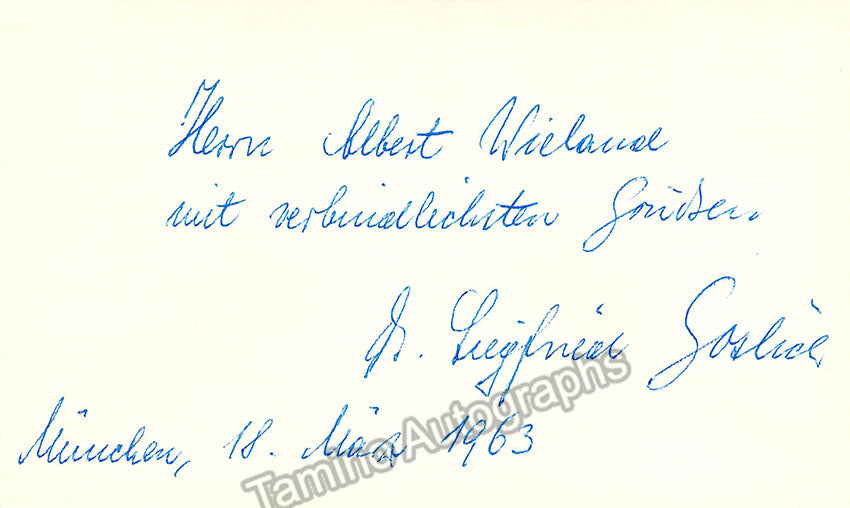 Herrn Albert Wieland
mit verbindlichsten Grüßen
Dr. Siegfried Goslich
München, 18. März 1963
Tamino Autographs